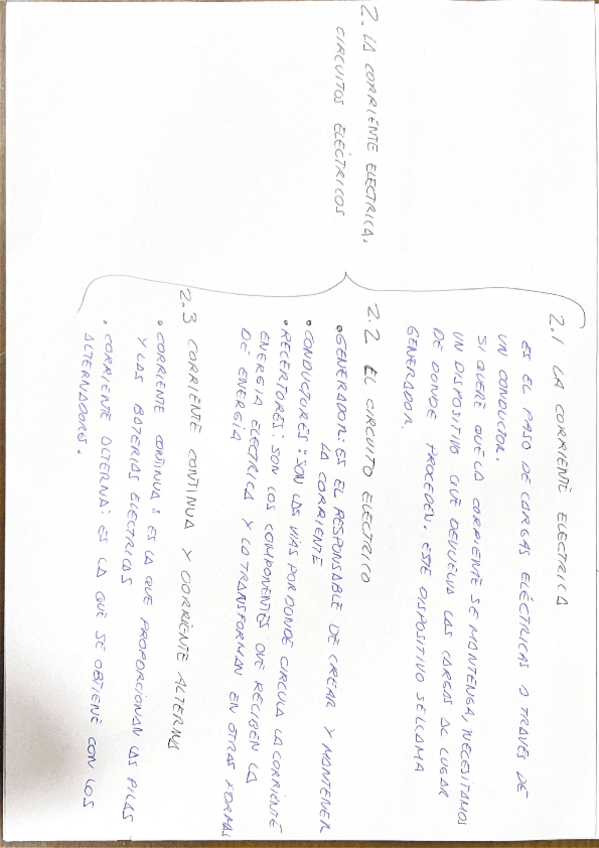 2. LA CORRIENTE ELECTRICA.
CIRCUITOS ELÉCTRICOS
2.1 LA CORRIENTE ELECTRICA
ES EL PASO DE CARGAS ELÉCTRICAS A TRAVÉS DE
UN CONDUCTOR.
SI QUERE QUE LA CORRIENTE SE MANTENGA, NECESITAMOS
UN DISPOSITIVO QUE DEVUELVA LAS CARGAS AL LUGAR
DE DONDE PROCEDEN. ESTE DISPOSITIVO SE LLAMA
GENERADOR.
2.2 EL CIRCUITO ELECTRICO
• GENERADOR: ES EL RESPONSABLE DE CREAR Y MANTENER
LA CORRIENTE
• CONDUCTORES: SON LAS VIAS POR DONDE CIRCULA LA CORRIENTE
• RECERTORES: SON LOS COMPONENTES QUE RECIBEN LA
ENERGIA ELECTRICA Y LA TRANSFORMAN EN OTRAS FORMAS
DE ENERGÍA
2.3 CORRIENTE CONTINUA Y CORRIENTE ALTERNA
• CORRIENTE CONTINUA: ES LA QUE PROPORCIONAN LAS PILAS
Y LAS BATERIAS ELECTRICAS
• CORRIENTE ALTERNA: ES LA QUE SE OBTIENE CON LOS
ALTERNADORES.